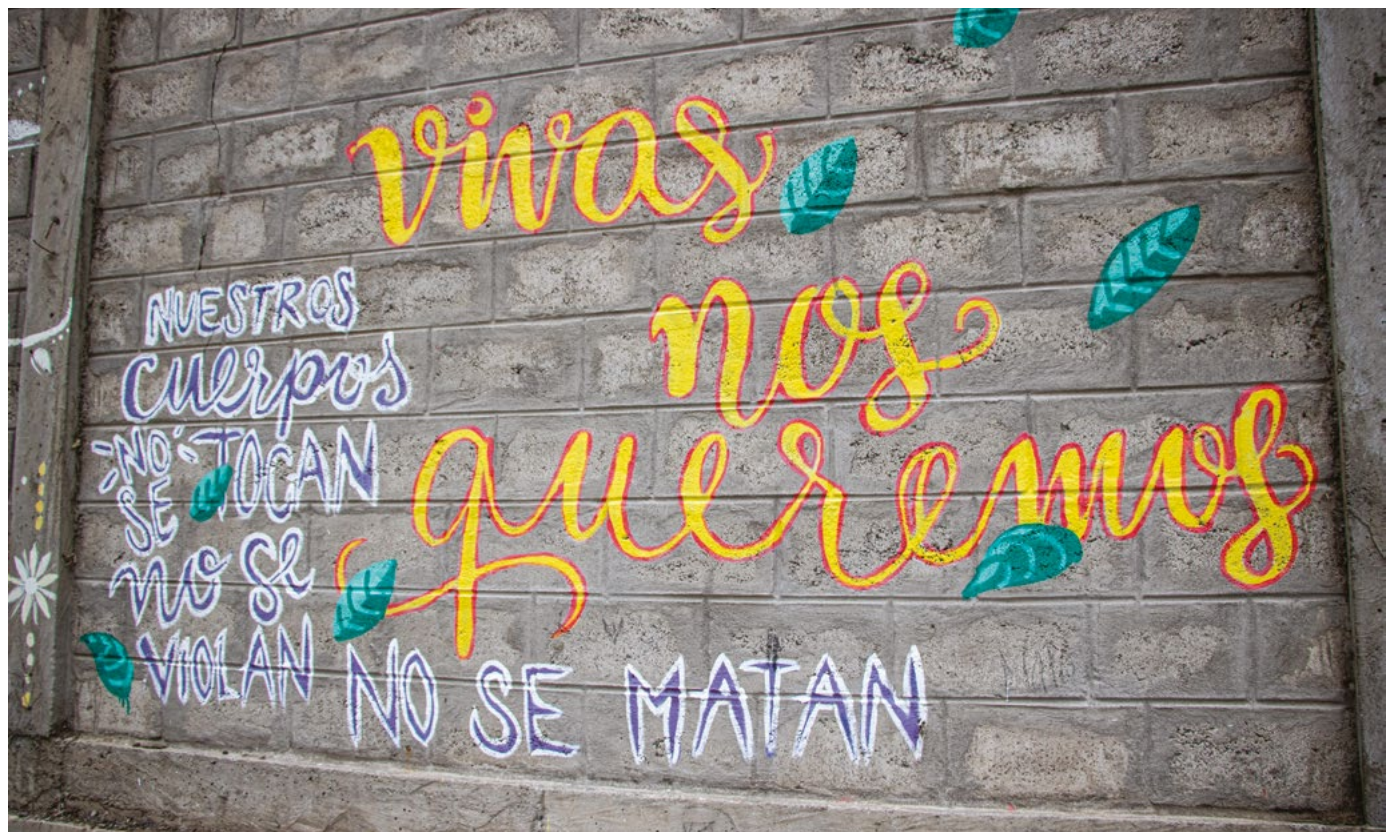 vivas
nos
queremos
NUESTROS
cuerpos
NO TOCAN
SE
no se
VIOLAN
NO SE MATAN